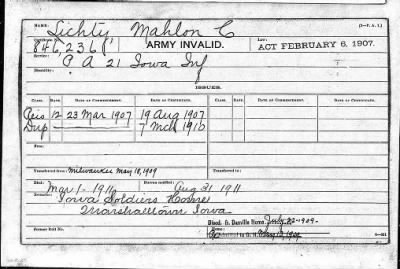 NAME: Lichty Mahlon C (3-P.A.I.)
Certificate No. 846,236 ARMY INVALID. ACT FEBRUARY 6, 1907.
Service: A 21 Iowa Inf
Disability:
ISSUES.
CLASS. RATE. DATE OF COMMENCEMENT. DATE OF CERTIFICATE. CLASS. RATE. DATE OF COMMENCEMENT. DATE OF CERTIFICATE.
12 23 Mar 1907 19 Aug 1907
Dup 7 Mch 1910
From To
Transferred from Milwaukee May 18, 1909
Died: Mar 1-1911 Bureau notified Aug 31 1911
Iowa Soldiers Home
Marshalltown Iowa
Discd. fr. Danville Home July 22-1909.
Former Roll No.